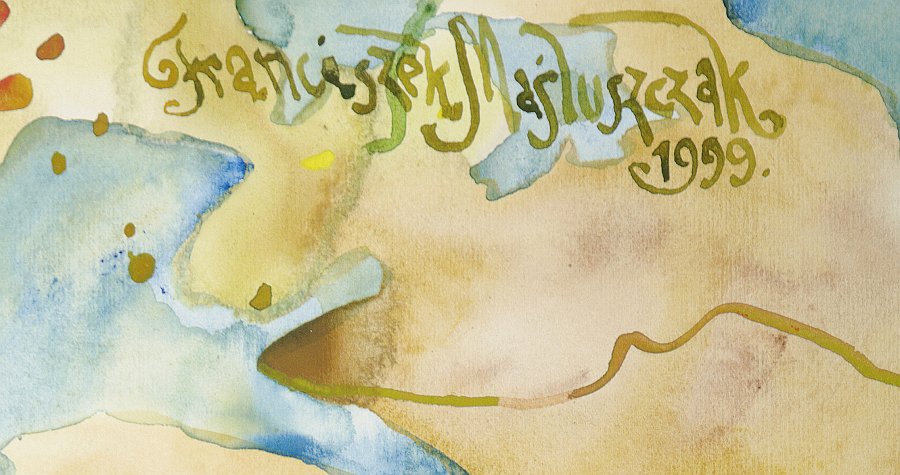 Franciszek Maśluszczak
1999.